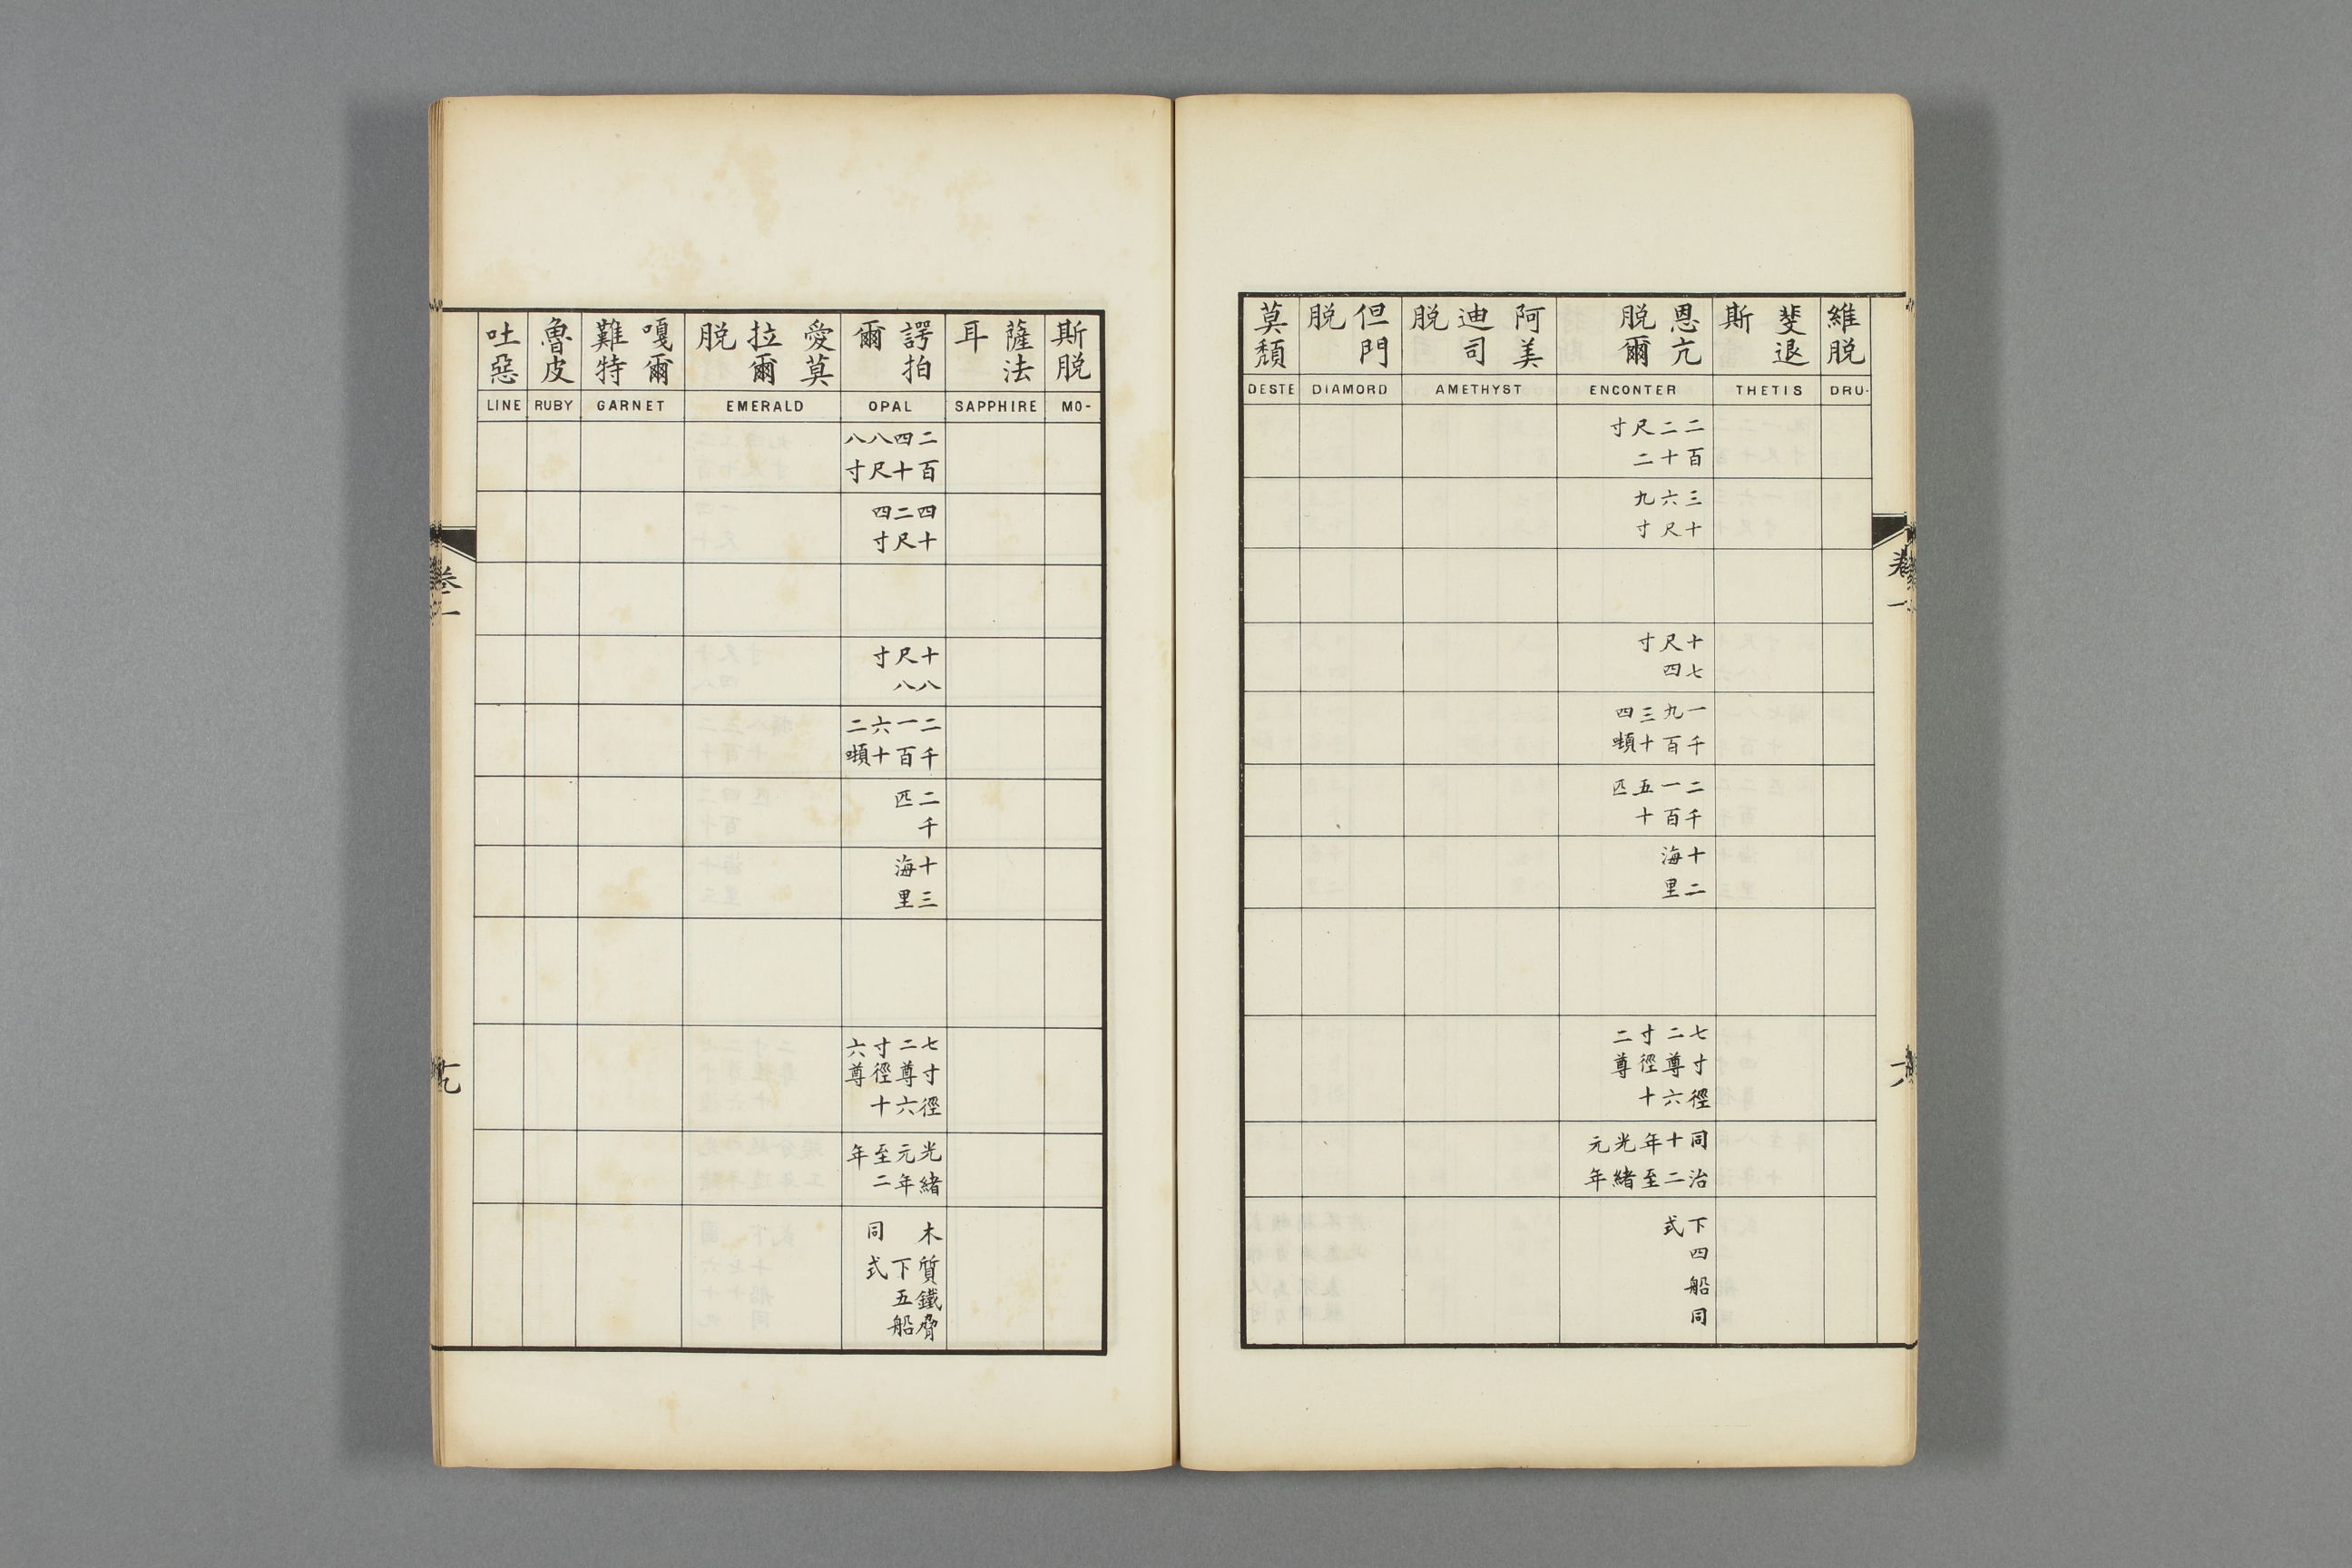 維脱
DRU-
斐退斯
THETIS
恩亢脱爾
ENCONTER
二百二十二尺寸
三十六尺九寸
十七尺四寸
一千九百三十四噸
二千一百五十匹
十二海里
七寸徑二尊六寸徑十二尊
同治十二年至光緒元年
下四船同式
阿美迪司脱
AMETHYST
但門脱
DIAMORD
莫頹
DESTE
卷一
六
斯脱
MO-
薩法耳
SAPPHIRE
諤拍爾
OPAL
二百四十八尺八寸
四十二尺四寸
十八尺八寸
二千一百六十二噸
二千匹
十三海里
七寸徑二尊六寸徑十六尊
光緒元年至二年
木質鐵脅下五船同式
愛莫拉爾脱
EMERALD
嘎爾難特
GARNET
魯皮
RUBY
吐惡
LINE
卷一
七